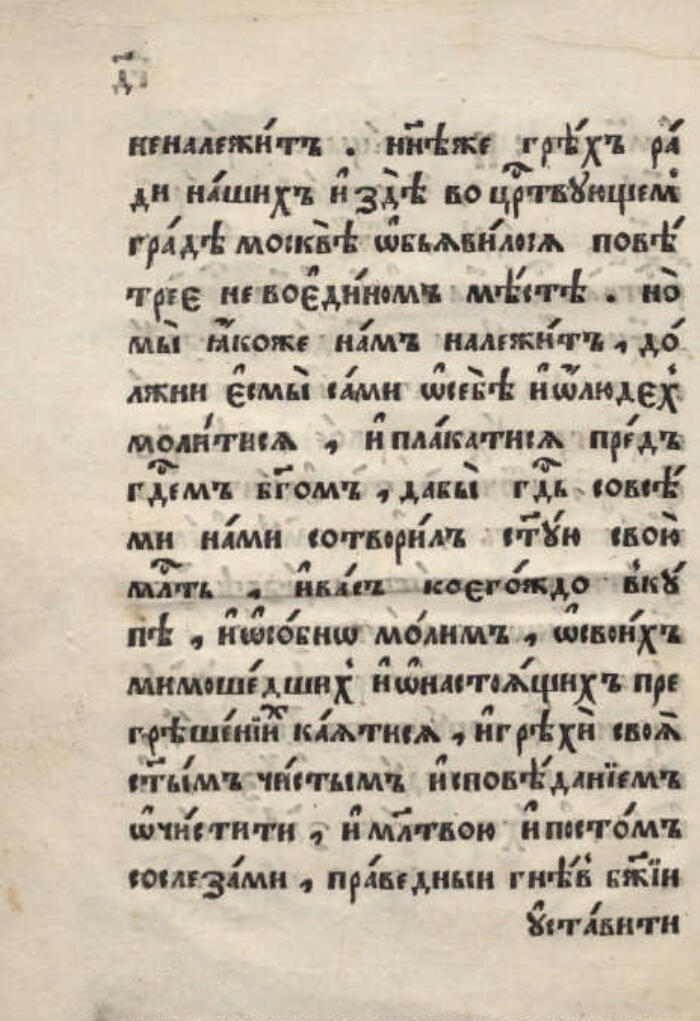 д҃і
ненале́житъ . нн҃ѣже грѣ́хъ ра́
ди на́шихъ и҆ здѣ̀ во црⷭ҇твꙋющемъ
гра́дѣ москвѣ̀ ѡ҆бъꙗви́лосѧ повѣ́
трее не воє҆ди́номъ мѣ́стѣ . но̀
мы̀ ꙗ҆́коже на́мъ нале́житъ , до́
лжни є҆смы̀ са́ми ѡ҆себѣ̀ и҆ѡ҆людехъ
моли́тисѧ , и҆ пла́катисѧ пре́дъ
гдⷭ҇емъ бг҃омъ , дабы̀ гдⷭ҇ь совсѣ́
ми на́ми сотвори́лъ ст҃ꙋ́ю свою̀
млⷭ҇ть , и҆ ва́съ коего́ждо вкꙋ́
пѣ , и҆ ѡ҆со́бнѡ мо́лимъ , ѡ҆свои́хъ
мимоше́дшихъ и҆ ѡ҆настоѧ́щихъ пре
грѣше́нїихъ ка́ѧтисѧ , и҆ грѣхѝ своѧ҆̀
ст҃ы́мъ чи́стымъ и҆сповѣ́данїемъ
ѡ҆чи́стити , и҆ мл҃твою и҆ посто́мъ
сослеза́ми , пра́ведныи гнѣ́въ бж҃їи
ᲂу҆ста́вити